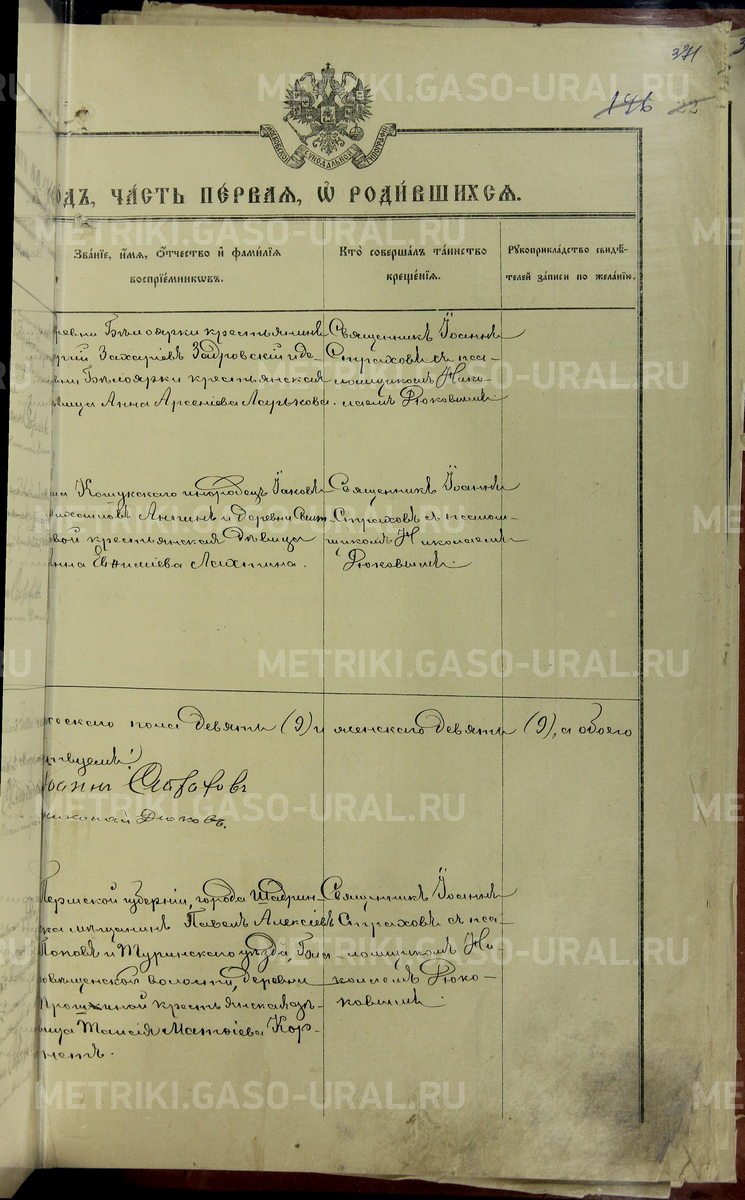 371
146 22
МОСКОВСКОЙ СѴНОДАЛЬНОЙ ТИПОГРАФІИ
ГОДЪ, ЧА́СТЬ ПЕ́РВАЯ, Ѽ РОДИ́ВШИХСЯ.
Зва́нїе, и҆́мѧ, ѻ҆́тчество и҆ фами́лїѧ
воспрїе́мникѡвъ.
Кто̀ соверша́лъ та́инство
креще́нїѧ.
Рꙋкоприкла́дство свидѣ́-
телей за́писи по жела́нїю.
ревни Бѣлоярки крестьянинъ
Захаріевъ Задровскій и де-
вни Бѣлоярки крестьянская
вица Анна Арсеніева Ларькова.
Священникъ Іоаннъ
Страховъ съ пса-
ломщикомъ Нико-
лаемъ Дюковымъ
Кошукскаго инородецъ Іаковъ
и деревни
вой крестьянская дѣвица
нна Евѳиміева Лахтина.
Священникъ Іоаннъ
Страховъ съ псалом-
щикомъ Николаемъ
Дюковымъ.
жескаго пола девять (9) и женскаго девять (9), а обоего
Іоаннъ Страховъ
Николай Дюковъ.
Пермской губерніи, города Шадрин-
ска мѣщанинъ Павелъ Алексіевъ
Поповъ и Туринскаго уѣзда, Бла-
говѣщенской волости, деревни
крестьянская дѣ-
вица Таисія Матѳіева Кор-
нетъ.
Священникъ Іоаннъ
Страховъ съ пса-
ломщикомъ Ни-
колаемъ Дюко-
ковымъ.
METRIKI.GASO-URAL.RU